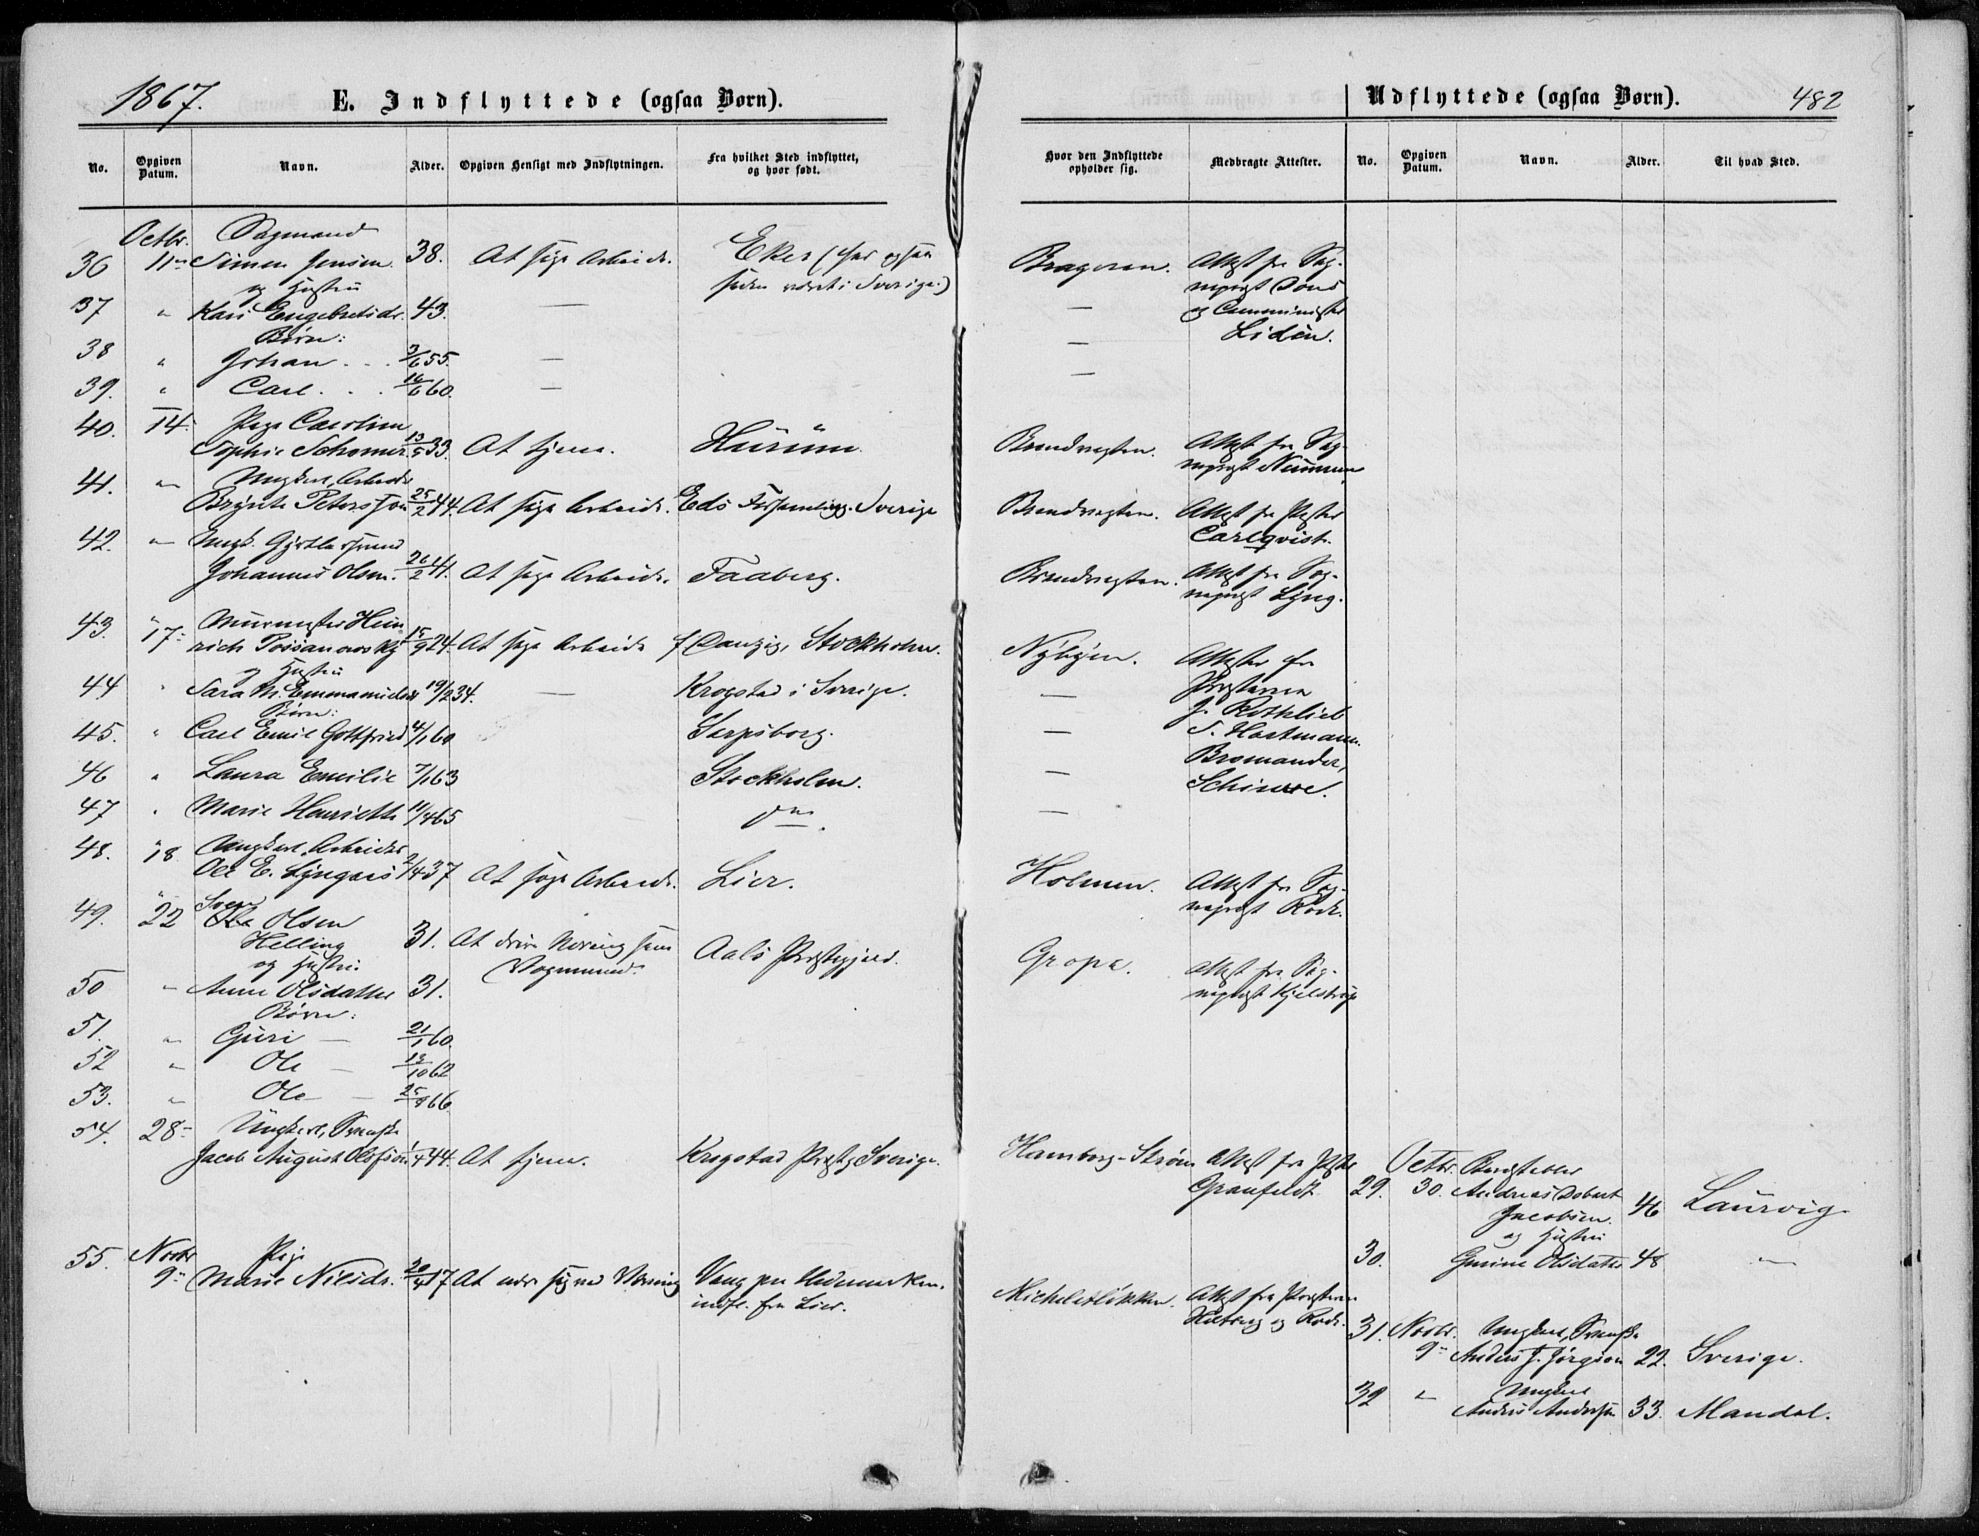 1867.
E. Indflyttede (ogsaa Børn).
No.
Opgiven Datum.
Navn.
Alder.
Opgiven Hensigt med Indflytningen.
Fra hvilket Sted indflyttet, og hvor født.
Octbr.
36 11 Simen Jensen 38. At søge Arbeide. Eker (har ogsaa
og Hustru
siden været i Sverige.)
37 " Kari Engebretsdr. 43. —
Børn:
38 " Johan . . . 3/6 55. —
39. " Carl . . . 16/6 60. —
40. 14. Pige Caroline
Sophie Schomer 13/5 33. At tjene. Hurum.
41. " Ungkarl, Arbeider
Petersson 25/2 44. At søge Arbeide. Eds Forsamling. Sverige
42. " Ungk.
Johannes Olsen. 26/2 41. At søge Arbeide. Faaberg.
43. 17 Murmester Hein
rich 15/9 24. At søge Arbeide f Danzig, Stockholm.
og Hustru
44 " Sara M. 19/2 34. — Krogstad i Sverige.
Børn:
45. " Carl Emil Gottfried 4/1 60 Sarpsborg.
46 " Laura Emilie 7/1 63 Stockholm.
47 " Marie Henriette 11/4 65
48. 18 Ungkarl Arbeider
Ole E. 2/4 37 At søge Arbeide. Lier.
Sven
49. 22 Olsen
Helling 31. At drive Næring som Aals Præstegjeld.
Vognmand.
og Hustru
50 " Anne Olsdatter 31.
Børn:
51. " Guri — 21/1 60.
52 " Ole — 13/10 62
53. " Ole — 66
54. 28 Ungkarl, Svenske
Jacob August Olsson 1/4 44. At tjene. Krogstad Præstg. Sverige.
55. Novbr Pige
9 Marie Nilsdr. 17 At Næring Vang paa Hedemarken.
indfl. fra Lier.
Udflyttede (ogsaa Børn).
482
Hvor den Indflyttede opholder sig.
Medbragte Attester.
No.
Opgiven Datum.
Navn.
Alder.
Til hvad Sted.
Bragernes. Attest fra Sog-
nepræst
— og Comminister
Lidén.
—
—
Brandvagten. Attest fra Sog-
nepræst
Brandvagten. Attest fra Præsten
Carlqvist.
Brandvagten. Attest fra Sog-
nepræst Lyng.
Nybyen. Attester fra
— Præsterne
J. Rothlieb
— T. Hartmann.
— Bromander,
Schiwe.
—
Holmen. Attest fra Sog-
nepræst Rode.
Gropa. Attest fra Sog-
nepræst Kjelstrup
Hamborg-Strøm Attest fra Præsten
Granfeldt
Octbr.
29. 30. Andreas
Jacobsen. 46 Laurvig.
og Hustru
30. Gurine Olsdatter 48 "
Attest fra Præsterne
og Rode.
31. Novbr. Ungkarl, Svenske
9 Anders J. 22. Sverige.
32 " Ungkarl
Anders Andersen 33. Mandal.